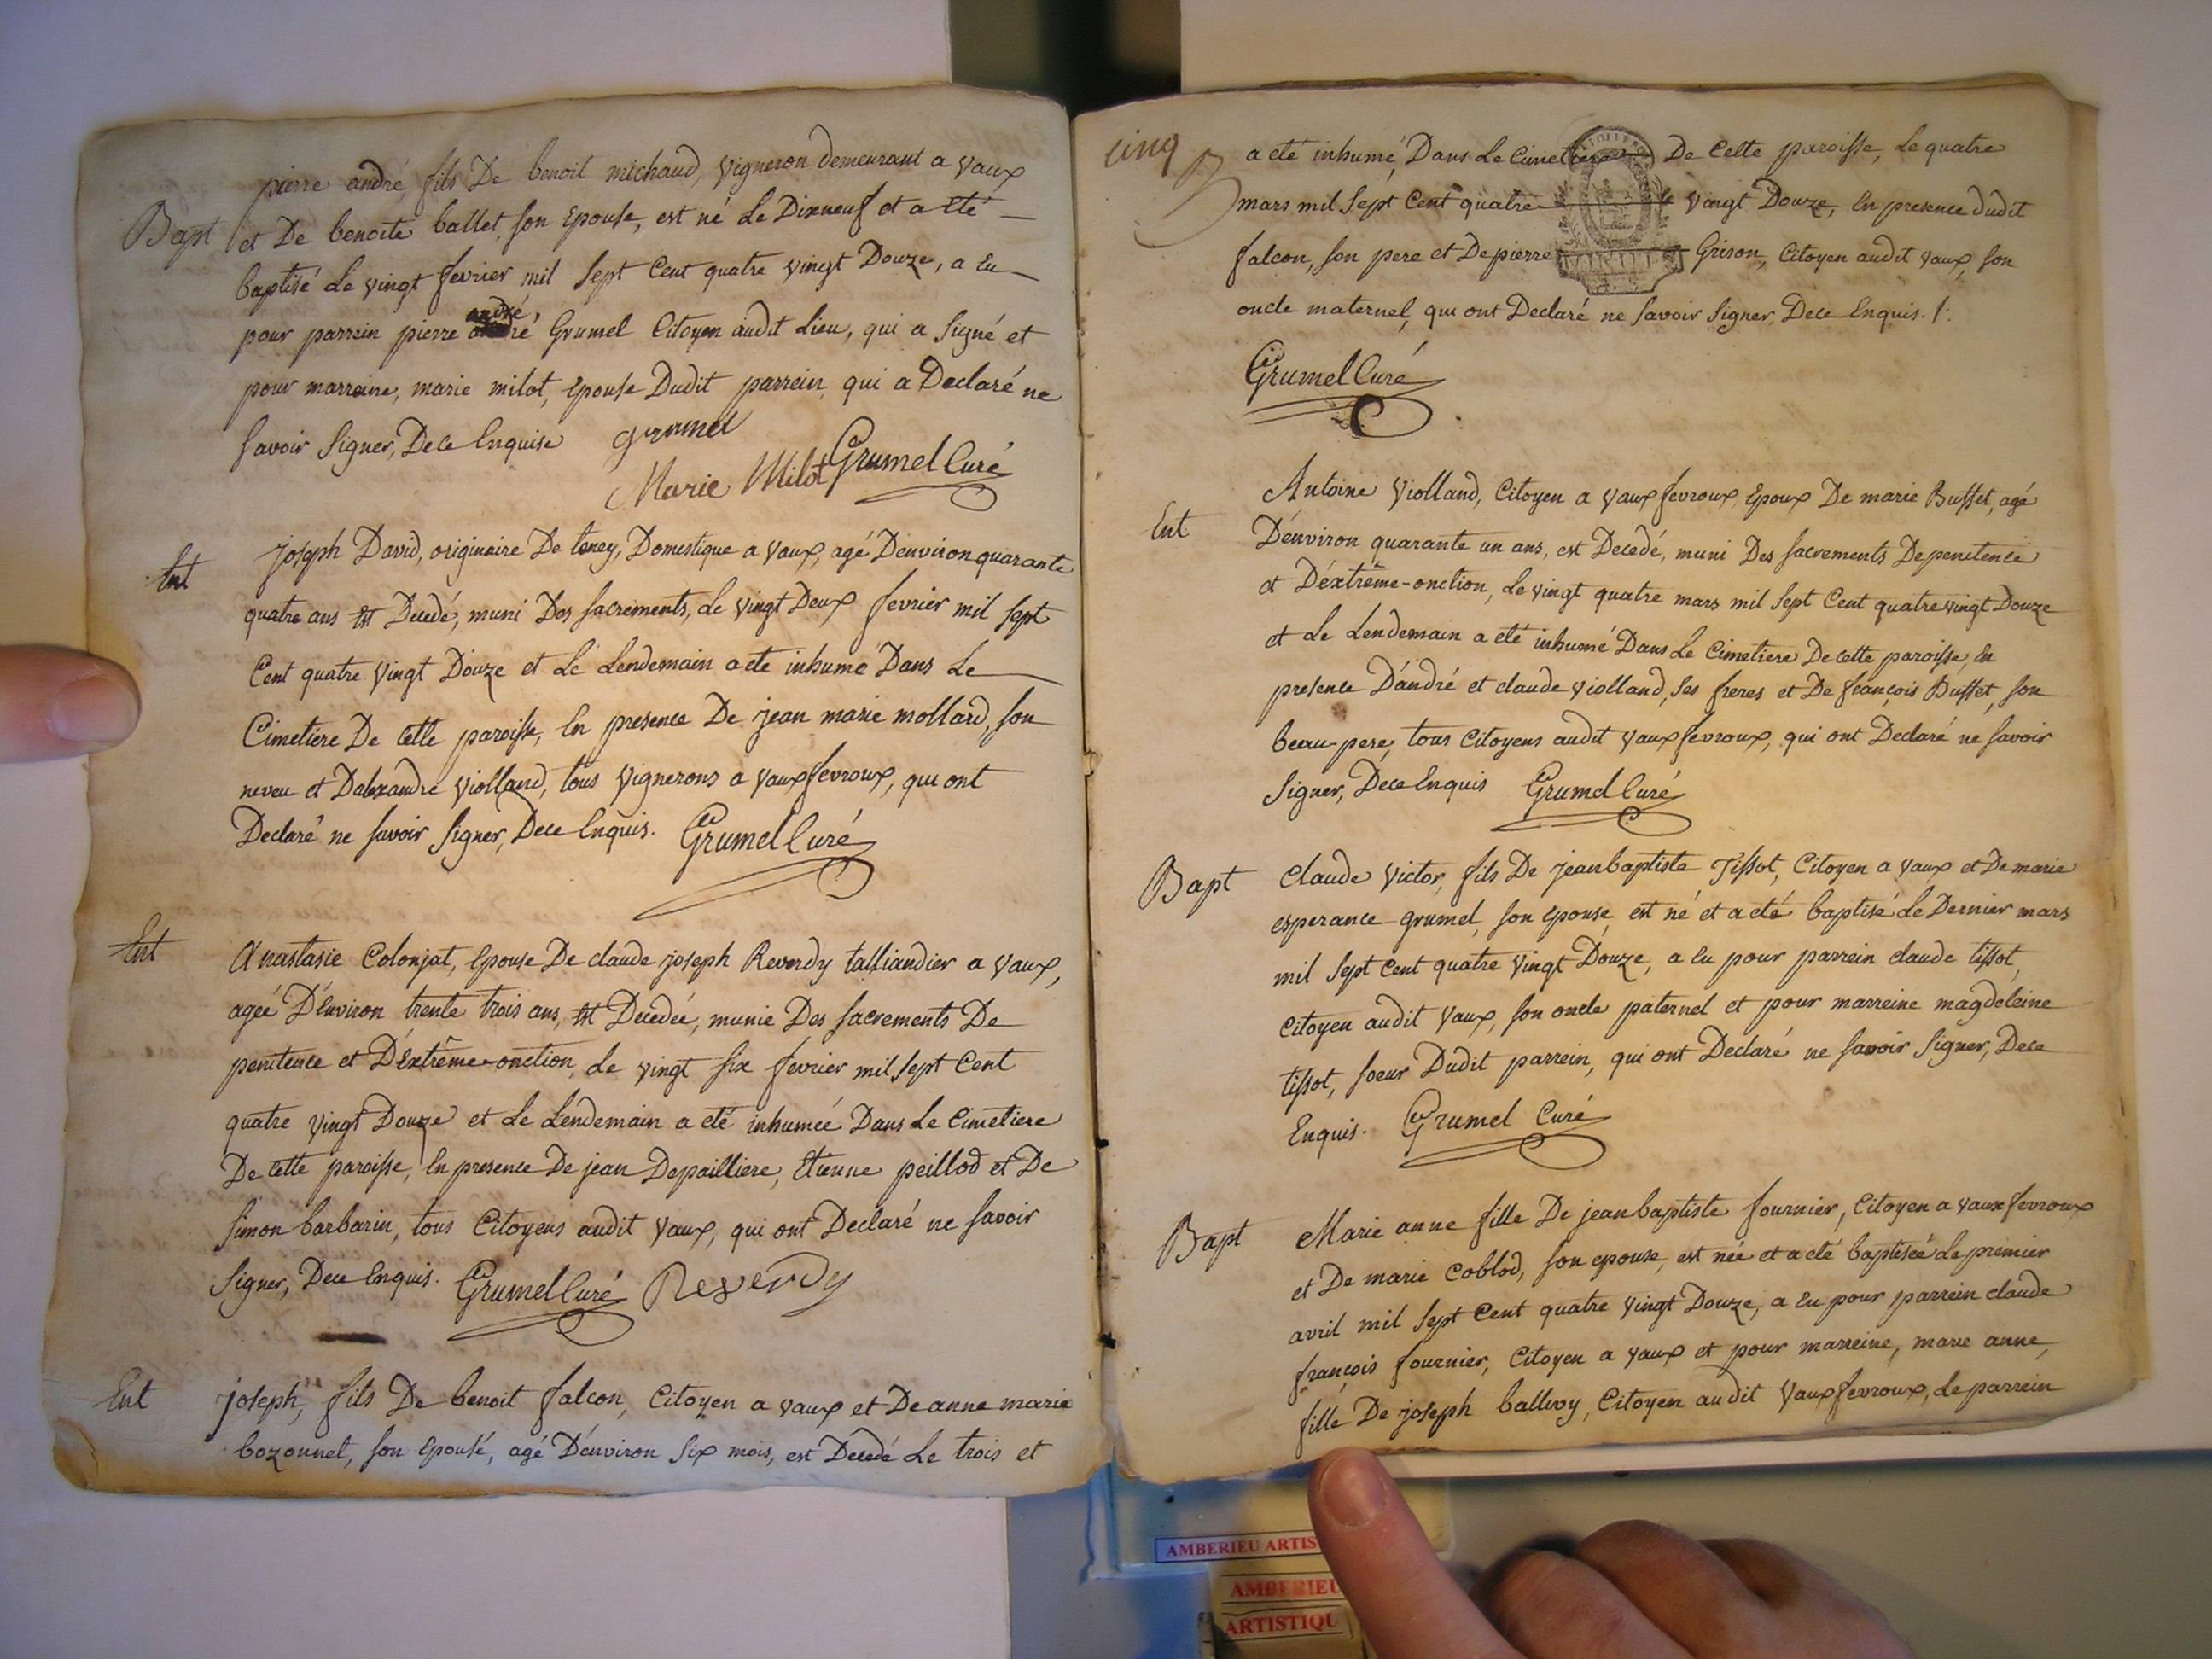 pierre andré, fils De benoit michaud, vigneron demeurant a vaux
Bapt et De benoite ballet, son Epouse, est né Le Dixneuf et a Eté
baptisé Le vingt fevrier mil Sept Cent quatre vingt Douze, a Eu
andré
pour parrein pierre Grumel Citoyen audit Lieu, qui a Signé et
pour marreine, marie milot, Epouse Dudit parrein, qui a Declaré ne
Savoir Signer, De ce Enquise grumel
Marie Milot Grumel Curé
Ent joseph David, originaire De teney, Domestique a vaux, agé D'environ quarante
quatre ans Est Decedé, muni Des Sacrements, Le vingt Deux fevrier mil Sept
Cent quatre vingt Douze et Le Lendemain a eté inhumé Dans Le
Cimetiere De Cette paroisse, En presence De jean marie mollard, Son
neveu et D'alexandre Violland, tous vignerons a vauxfevroux, qui ont
Declaré ne Savoir Signer, De ce Enquis. Grumel Curé
Ent Anastasie Colonjat, Epouse De claude joseph Reverdy talliandier a vaux,
agée D'Environ trente trois ans, Est Decedée, munie Des Sacrements De
penitence et D'Extrême-onction, Le vingt Six fevrier mil Sept Cent
quatre vingt Douze et Le Lendemain a eté inhumée Dans Le Cimetiere
De Cette paroisse, En presence De jean Depailliere, Etienne peillod et De
Simon barbarin, tous Citoyens audit vaux, qui ont Declaré ne Savoir
Signer, De ce Enquis. Grumel Curé Reverdy
Ent joseph, fils De benoit falcon, Citoyen a vaux et De anne marie
bozonnet, Son Epouse, agé D'environ Six mois, est Decedé Le trois et
cinq
a eté inhumé Dans Le Cimetiere De Cette paroisse, Le quatre
mars mil Sept Cent quatre vingt Douze, En presence dudit
falcon, Son pere et De pierre Grison, Citoyen audit vaux, Son
oncle maternel, qui ont Declaré ne Savoir Signer, De ce Enquis. /:
Grumel Curé
Antoine Violland, Citoyen a vauxfevroux Epoux De marie Buffet, agé
Ent D'environ quarante un ans, est Decedé, muni Des Sacrements De penitence
et D'extrême-onction, Le vingt quatre mars mil Sept Cent quatre vingt Douze
et Le Lendemain a eté inhumé Dans Le Cimetiere De Cette paroisse, En
presence D'andré et claude violland, Ses freres et De françois Buffet, Son
beau-pere, tous Citoyens audit vauxfevroux, qui ont Declaré ne Savoir
Signer, De ce Enquis Grumel Curé
Bapt Claude Victor, fils De jeanbaptiste Tissot, Citoyen a vaux et De marie
esperance grumel, Son epouse, est né et a eté baptisé Le Dernier mars
mil Sept Cent quatre vingt Douze, a Eu pour parrein claude tissot,
Citoyen audit vaux, Son oncle paternel et pour marreine magdeleine
tissot, Soeur Dudit parrein, qui ont Declaré ne Savoir Signer, De ce
Enquis. Grumel Curé
Bapt Marie anne fille De jeanbaptiste fournier, Citoyen a vauxfevroux
et De marie Coblod, Son epouse, est née et a eté baptisée Le premier
avril mil Sept Cent quatre vingt Douze, a Eu pour parrein claude
françois fournier, Citoyen a vaux et pour marreine, marie anne,
fille De joseph ballivoy, Citoyen audit vauxfevroux, Le parrein
AMBERIEU ARTIS
AMBERIEU
ARTISTIQU